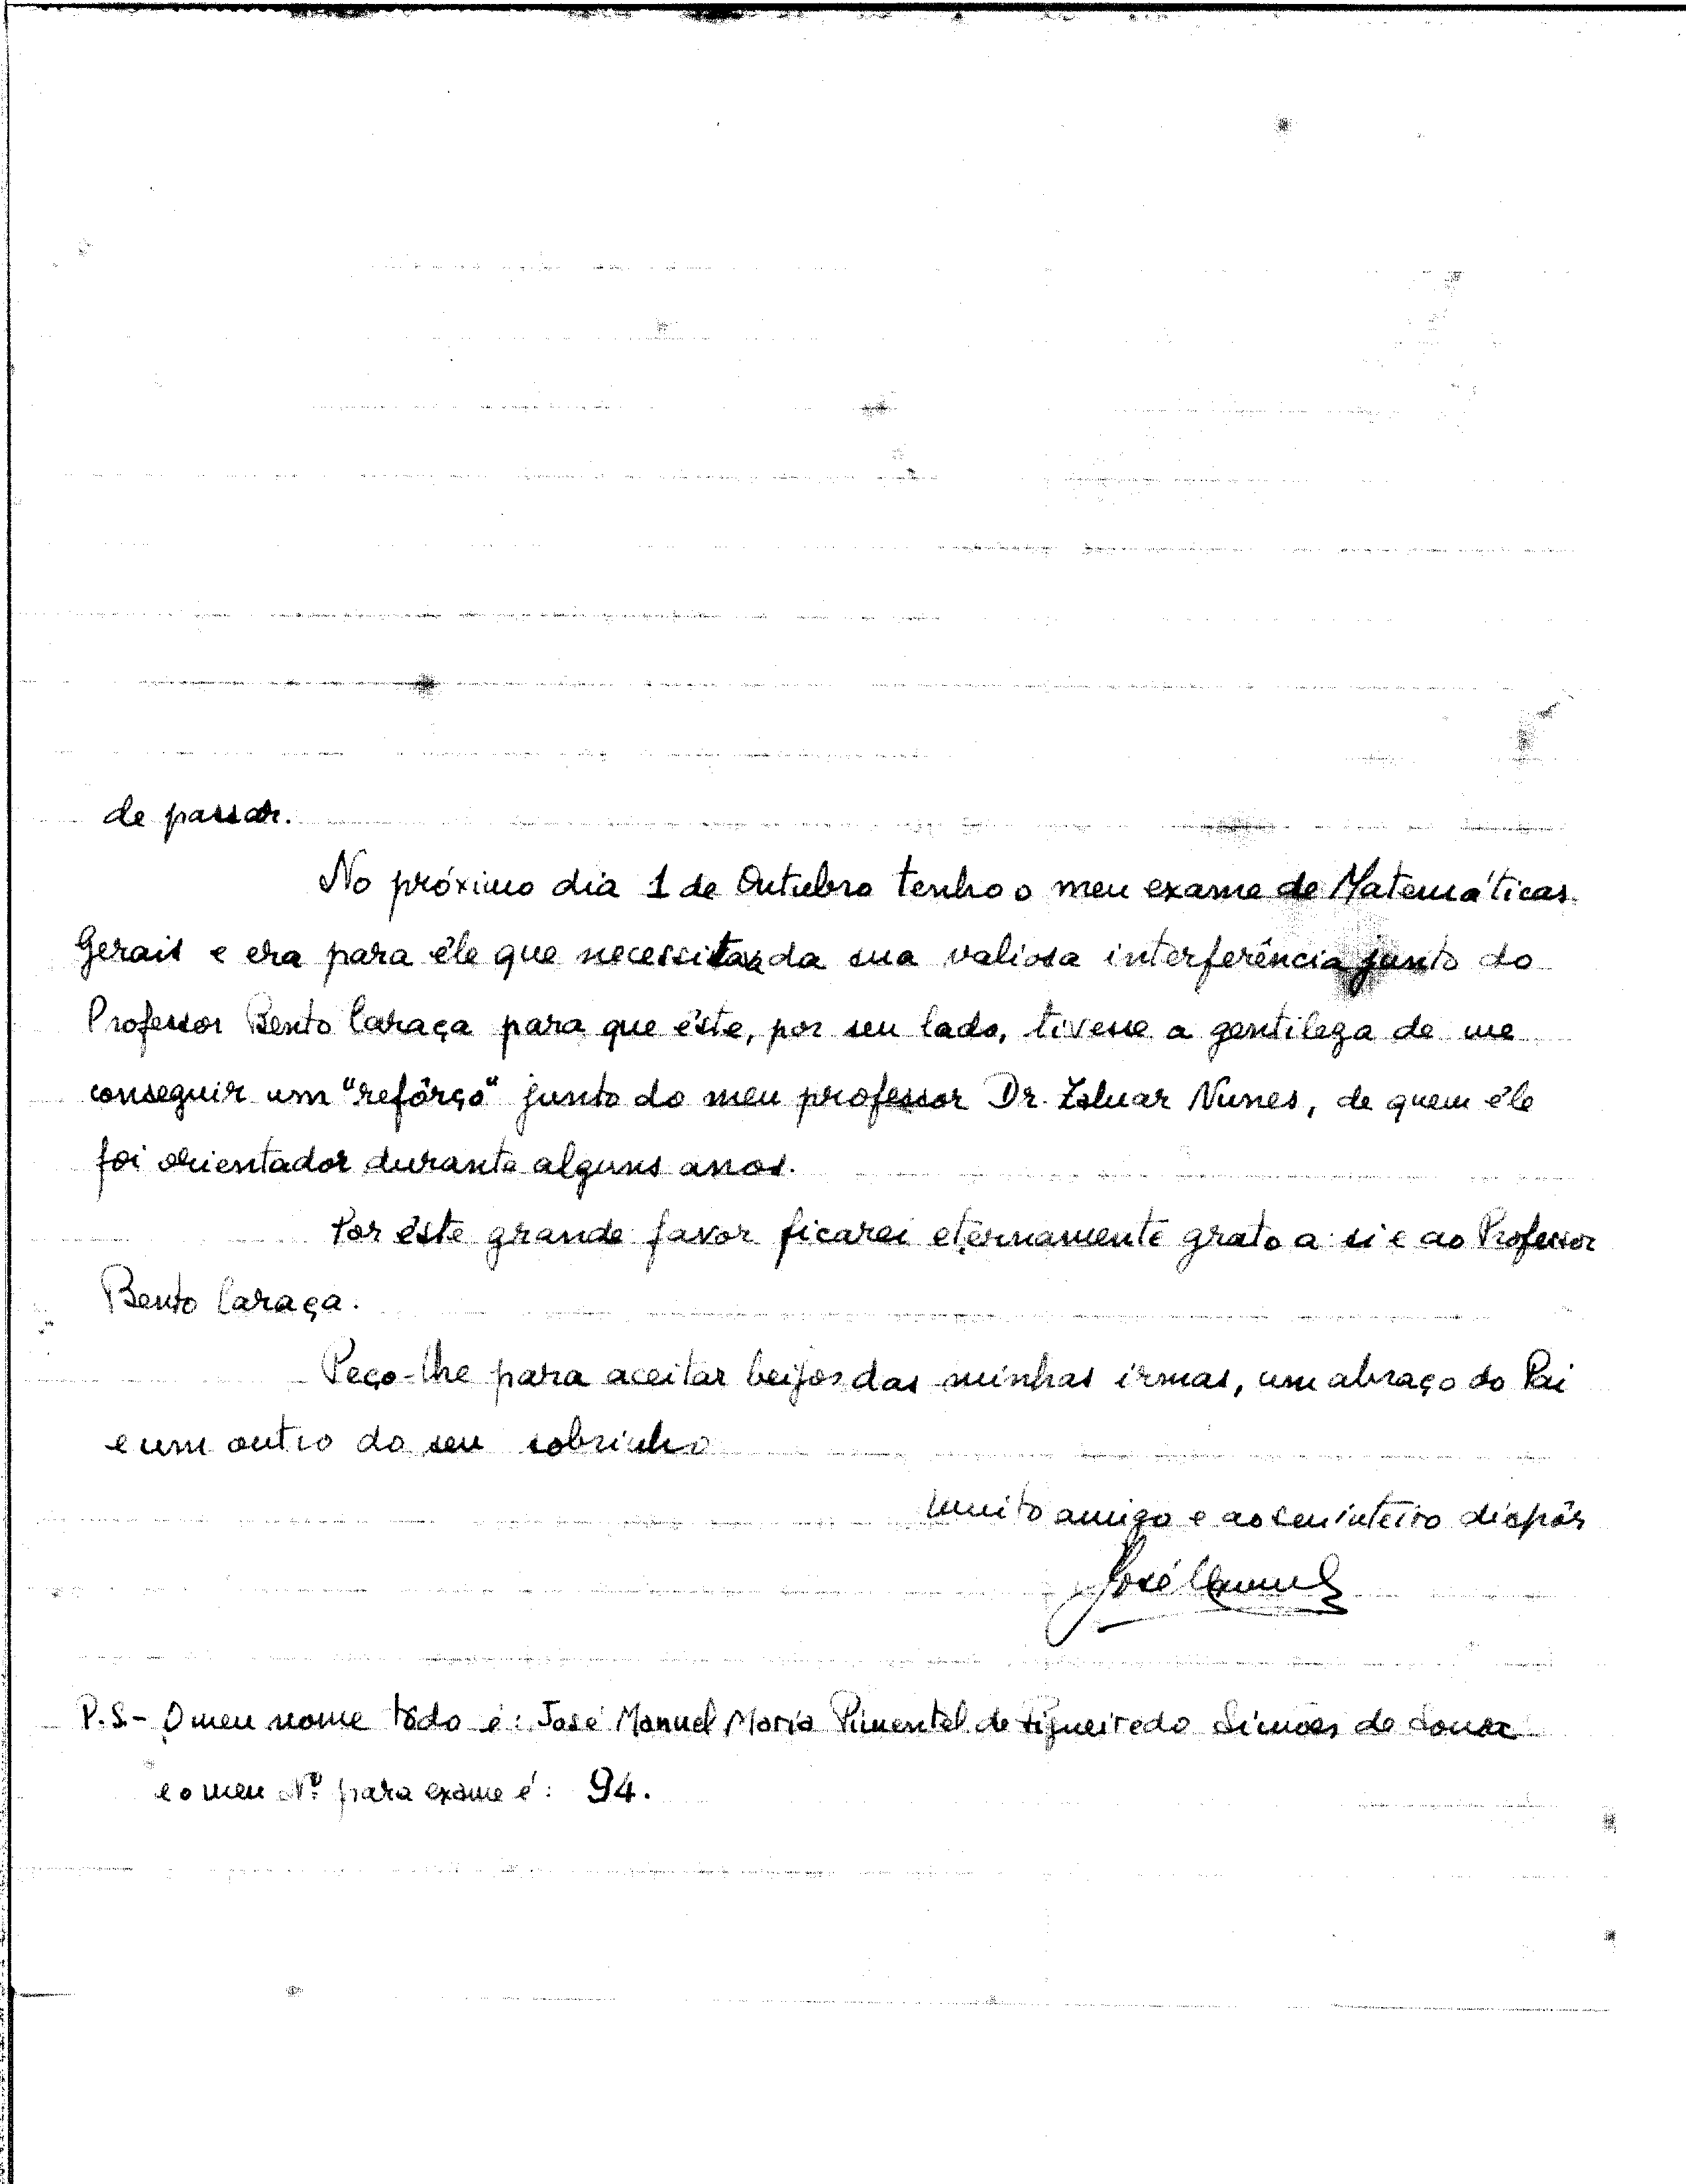 de passar.
No próximo dia 1 de Outubro tenho o meu exame de Matemáticas
Gerais e era para êle que necessitava da sua valiosa interferência junto do
Professor Bento Caraça para que êste, por seu lado, tivesse a gentileza de me
conseguir um "refôrço" junto do meu professor Dr. Zaluar Nunes, de quem êle
foi orientador durante alguns anos.
Por êste grande favor ficarei eternamente grato a si e ao Professor
Bento Caraça.
Peço-lhe para aceitar beijos das minhas irmas, um abraço do Pai
e um outro do seu sobrinho
muito amigo e ao seu inteiro dispôr
José Manuel
P.S - O meu nome todo é: José Manuel Maria Pimentel de Figueiredo Simões de Sousa
e o meu Nº para exame é: 94.